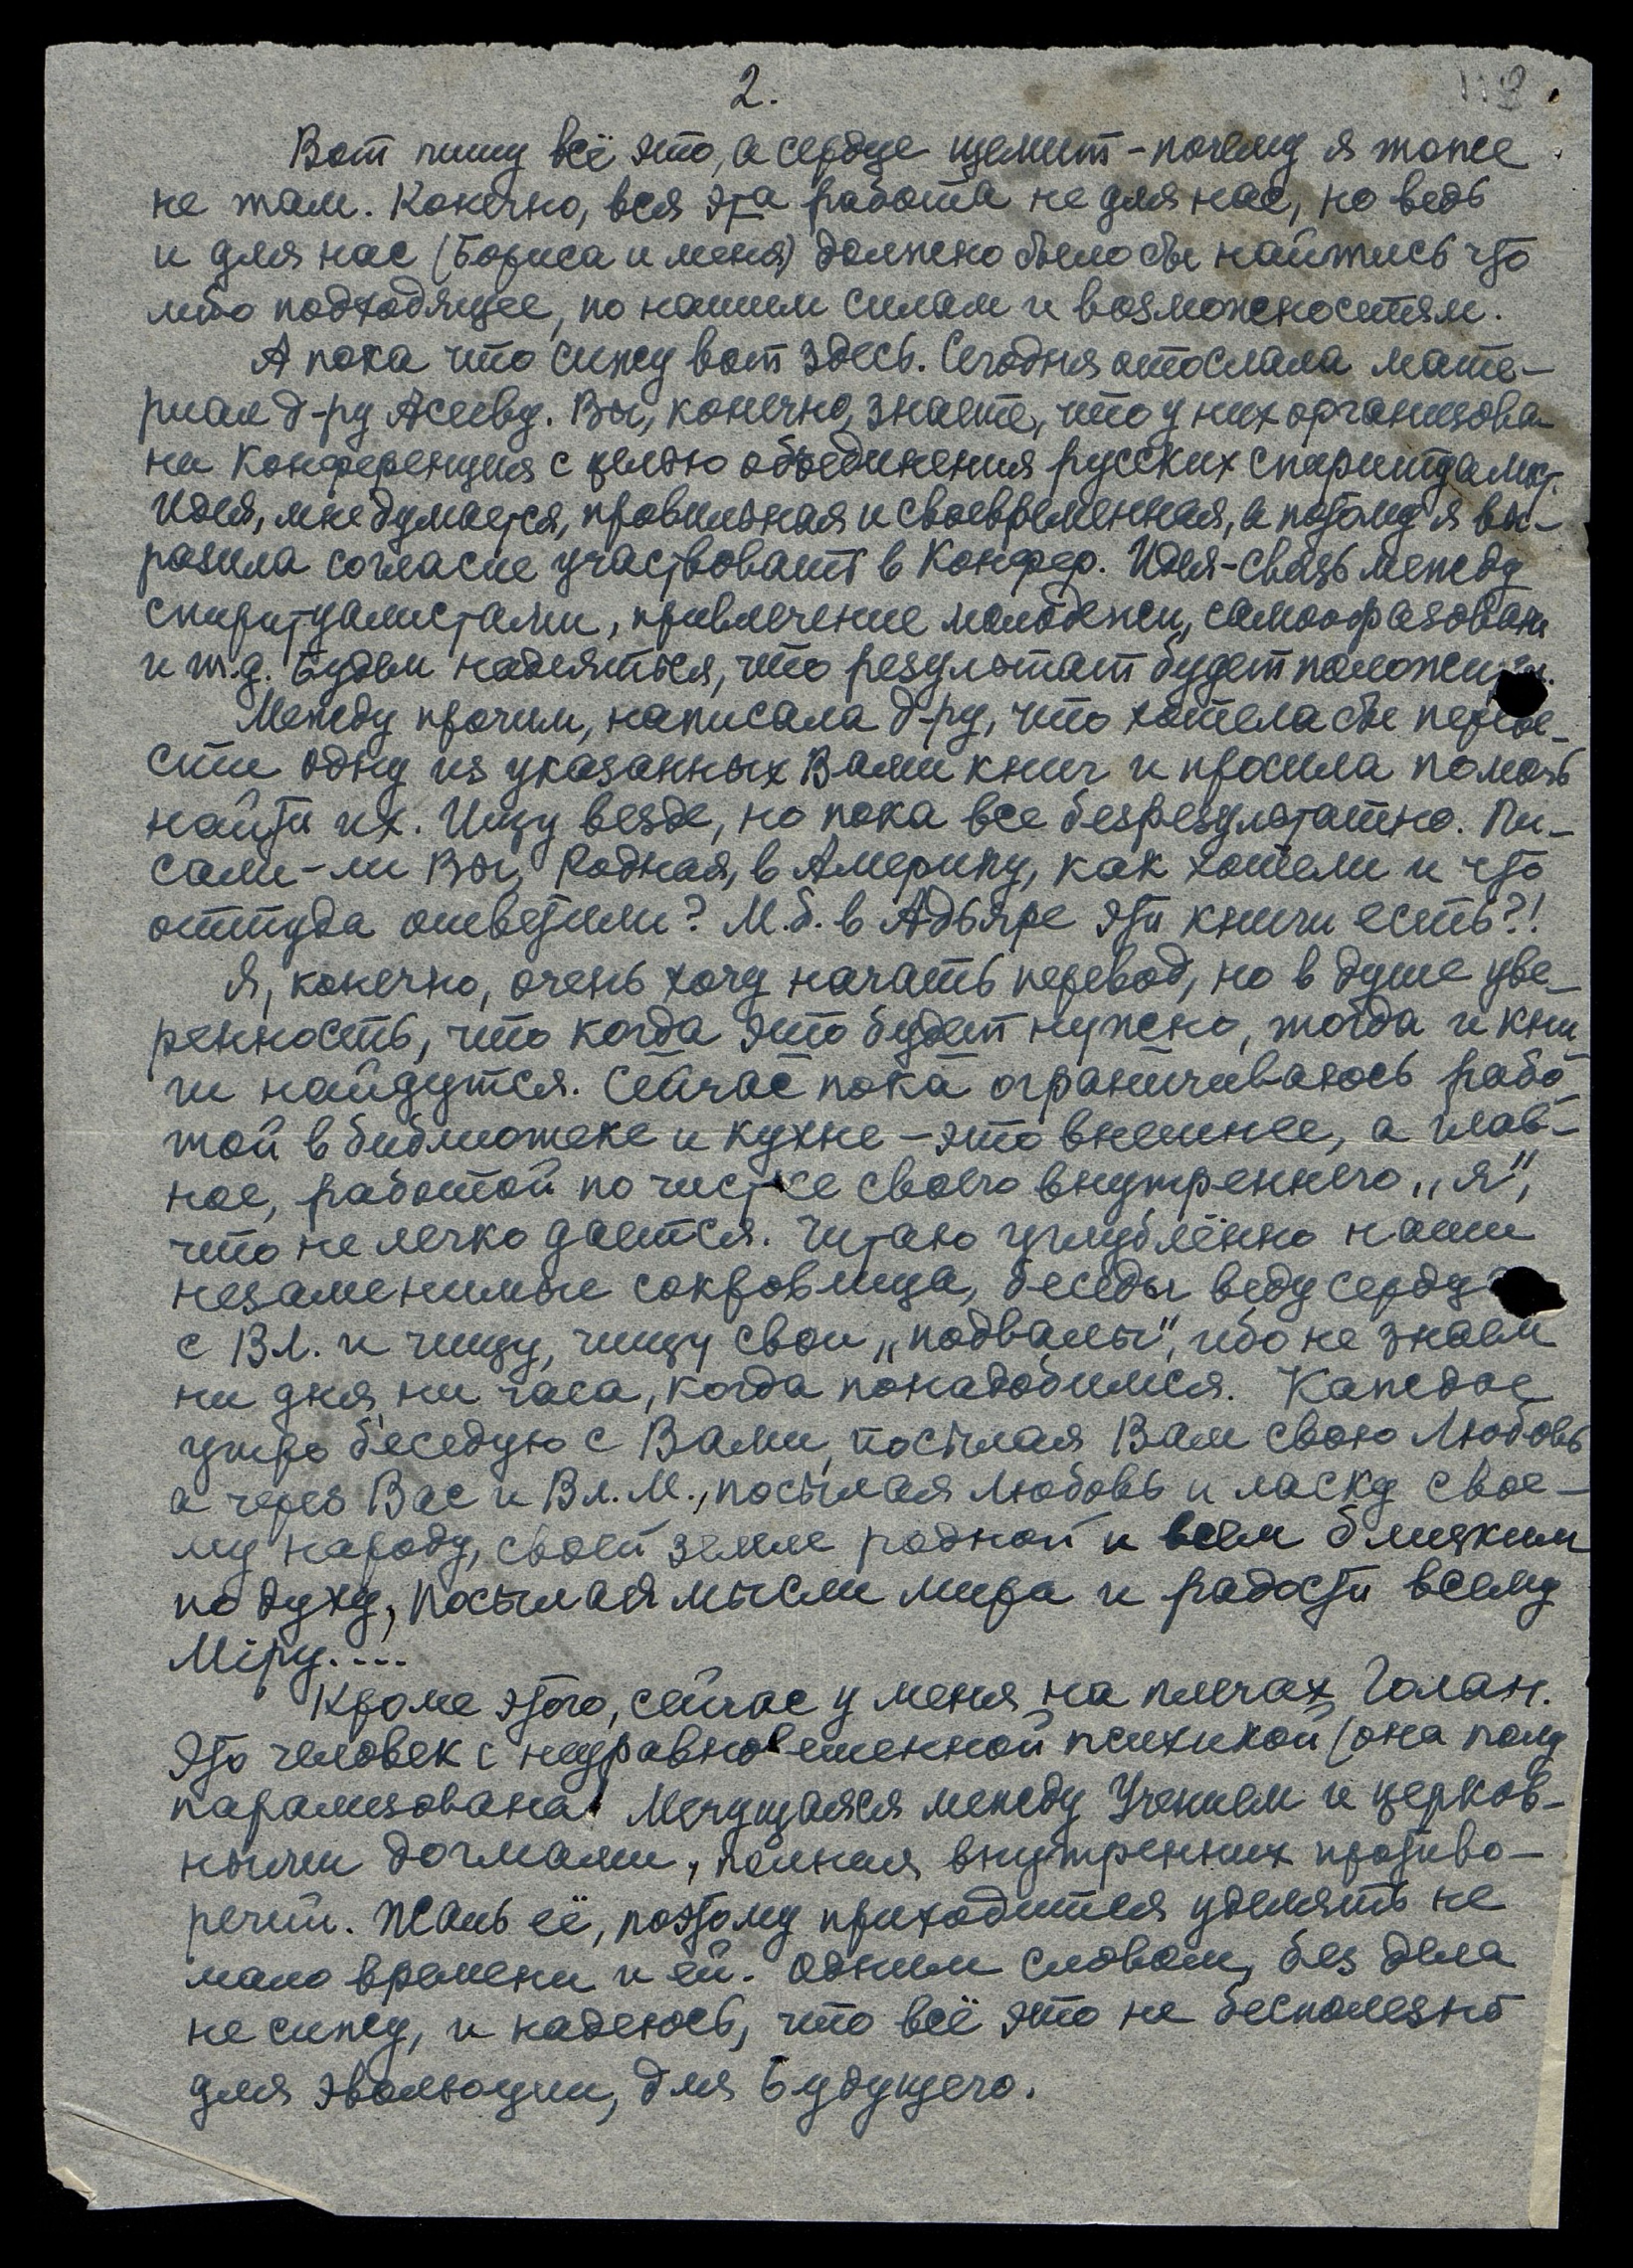 2.
Вот пишу всё это, а сердце щемит - почему я тоже
не там. Конечно, вся эта работа не для нас, но ведь
и для нас (Бориса и меня) должно было бы найтись что
либо подходящее, по нашим силам и возможностям.
А пока что сижу вот здесь. Сегодня отослала мате-
риал д-ру Асееву. Вы, конечно, знаете, что у них организова-
на Конференция с целью объединения русских спиритуалист.
Идея, мне думается, правильная и своевременная, а потому я вы-
разила согласие участвовать в Конфер. Идея - связь между
спиритуалистами, привлечение молодежи, самообразован
и т.д. Будем надеяться, что результат будет положит.
Между прочим, написала д-ру, что хотела бы переве-
сти одну из указанных Вами книг и просила помочь
найти их. Ищу везде, но пока все безрезультатно. Пи-
сали-ли Вы, Родная, в Америку, как хотели и что
оттуда ответили? М.б. в Адьяре эти книги есть?!
Я, конечно, очень хочу начать перевод, но в душе уве-
ренность, что когда это будет нужно, тогда и кни
ги найдутся. Сейчас пока ограничиваюсь рабо
той в библиотеке и кухне - это внешнее, а глав-
ное, работой по чистке своего внутреннего „я",
что не легко дается. Читаю углублённо наши
незаменимые сокровища, беседы веду сердца
с Вл. и чищу, чищу свои „подвалы", ибо не знаем
ни дня, ни часа, когда понадобимся. Каждое
утро беседую с Вами, посылая Вам свою Любовь
а через Вас и Вл. М., посылая любовь и ласку свое-
му народу, своей земле родной и всем близким
по духу, посылая мысли мира и радости всему
Мiру....
Кроме этого, сейчас у меня на плечах Голан.
Это человек с неуравновешенной психикой (она полу
парализована) Мечущаяся между Учением и церков-
ными догмами, полная внутренних противо-
речий. Жаль её, поэтому приходится уделять не
мало времени и ей. Одним словом, без дела
не сижу, и надеюсь, что всё это не бесполезно
для эволюции, для Будущего.